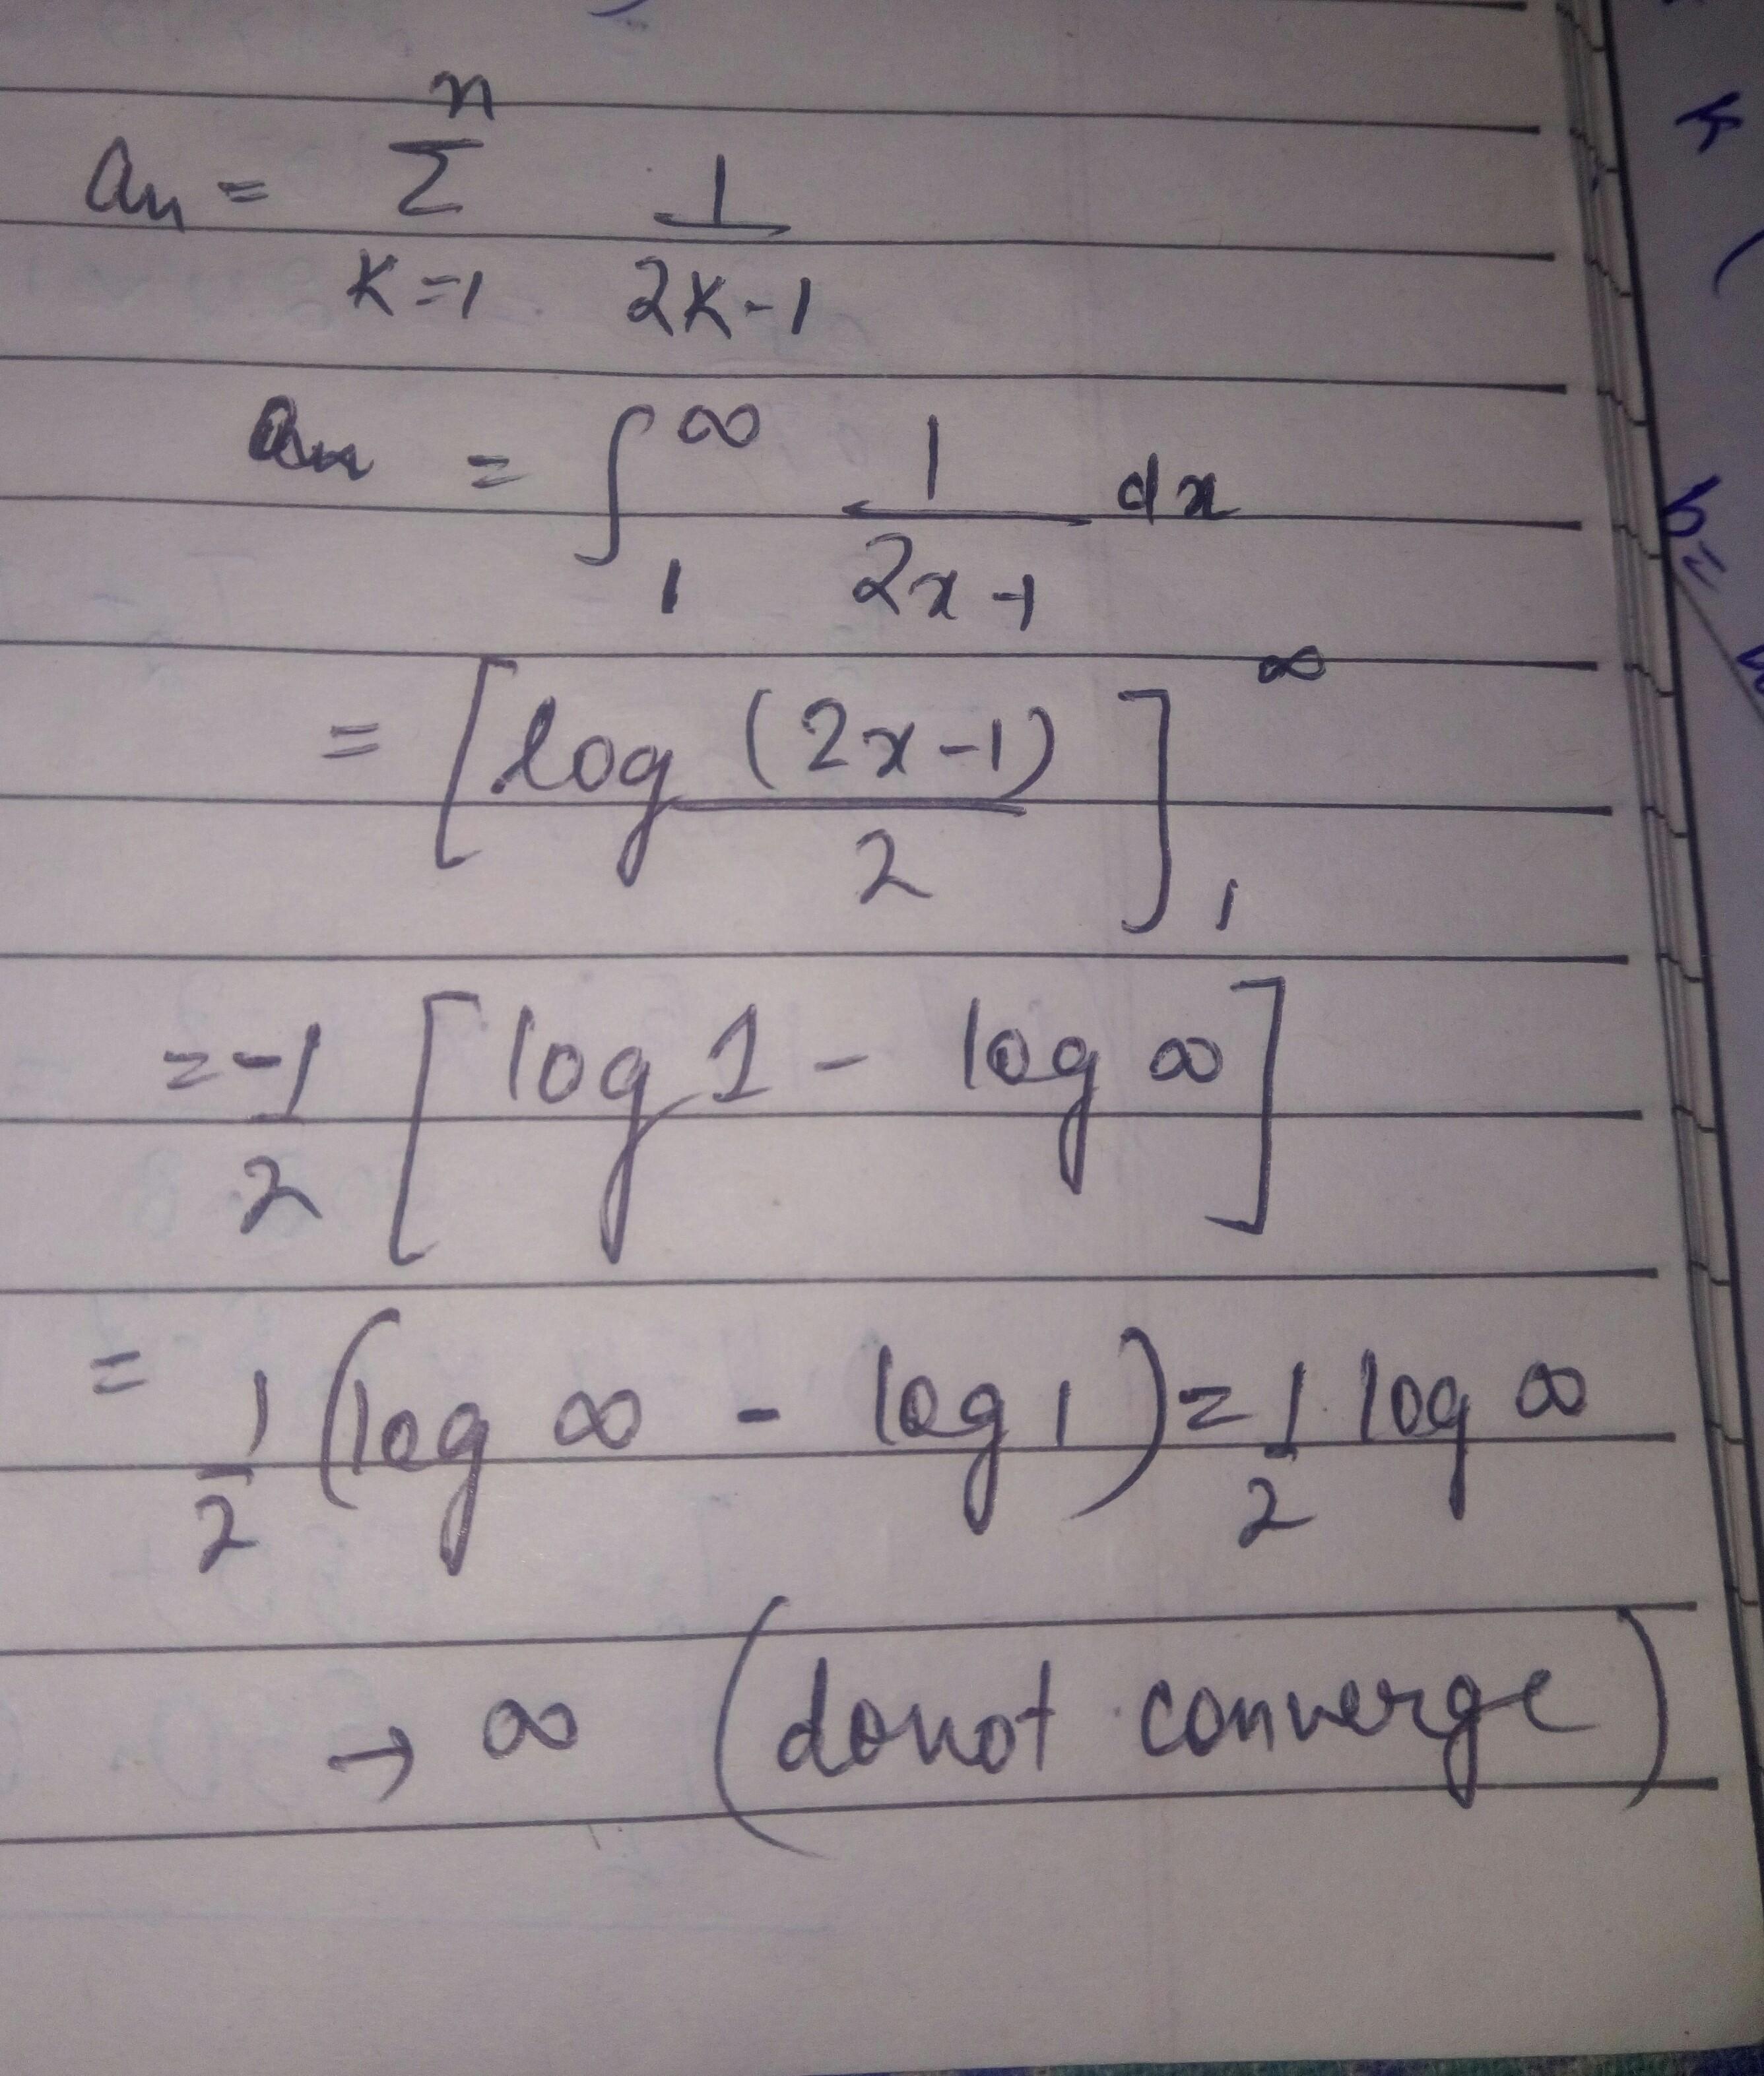 aₙ = Σ_{K=1}^{n} 1/(2K-1)
aₙ = ∫₁^∞ 1/(2x-1) dx
= [log (2x-1)/2]₁^∞
= -1/2 [log 1 - log ∞]
= 1/2 (log ∞ - log 1) = 1/2 log ∞
→ ∞ (donot converge)